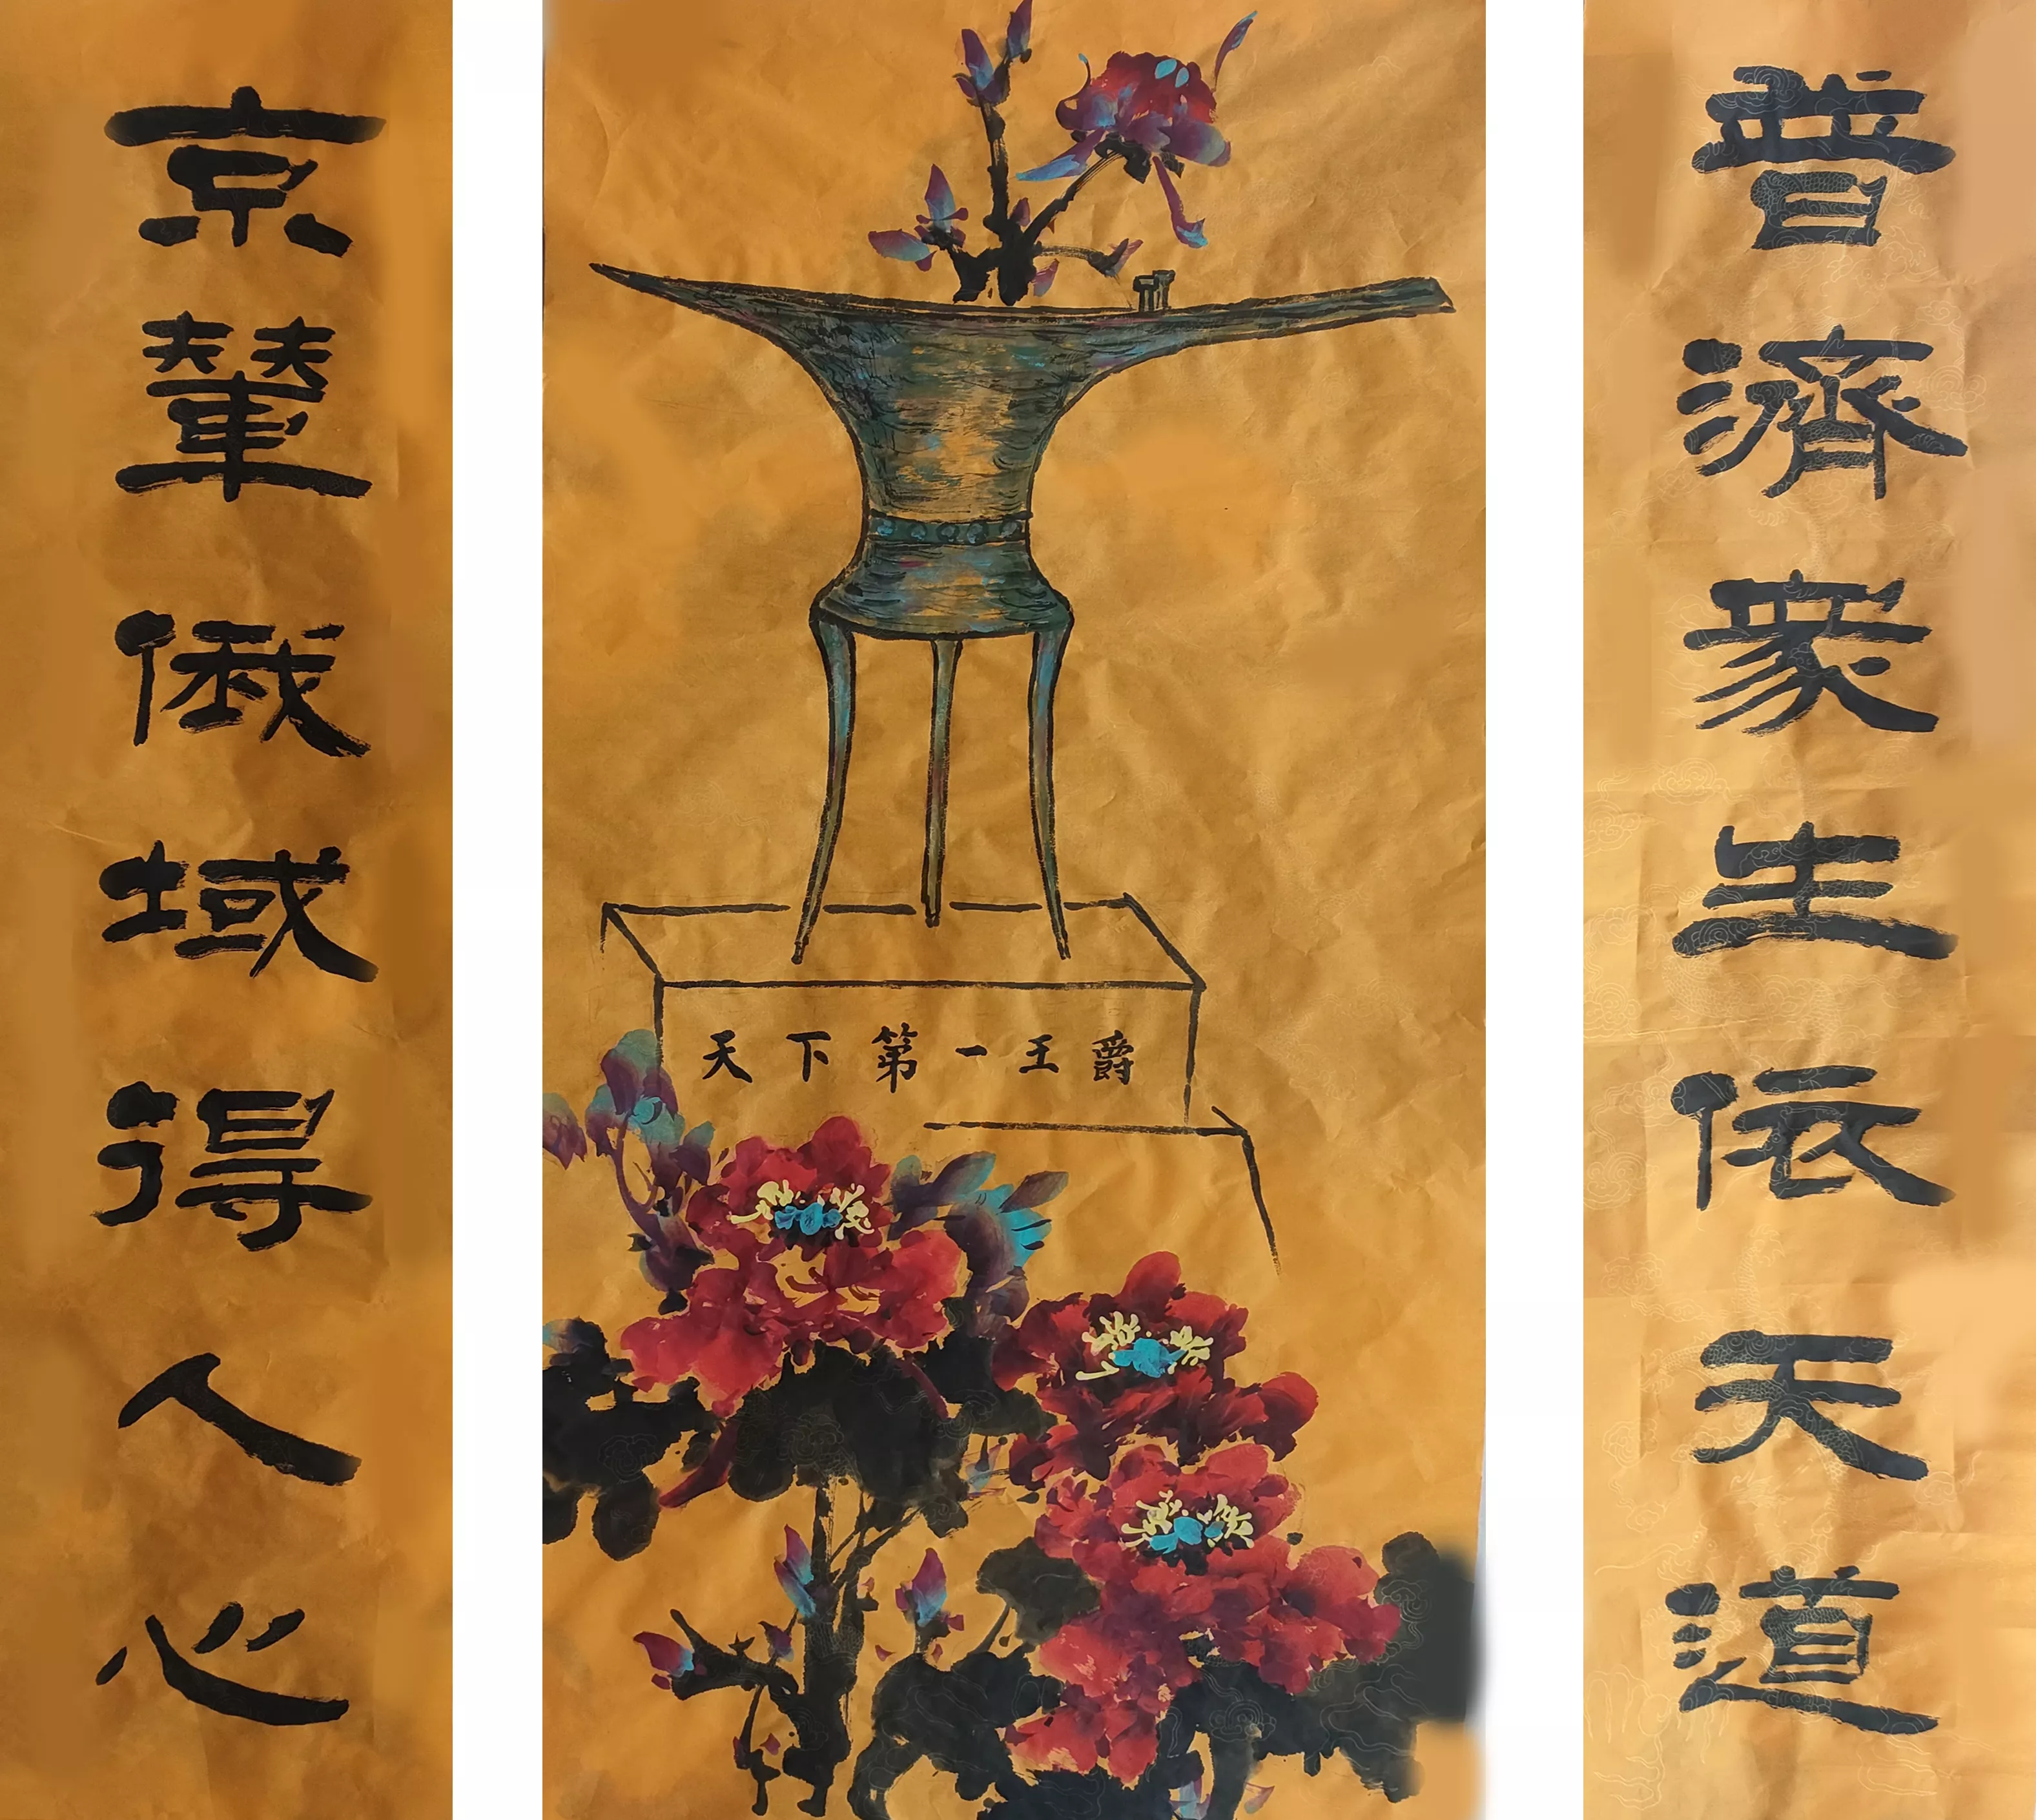 普濟衆生依天道
天下第一王爵
京輦俄域得人心